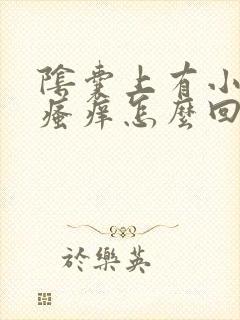 陰囊上有小
瘙痒怎麼回
於樂英